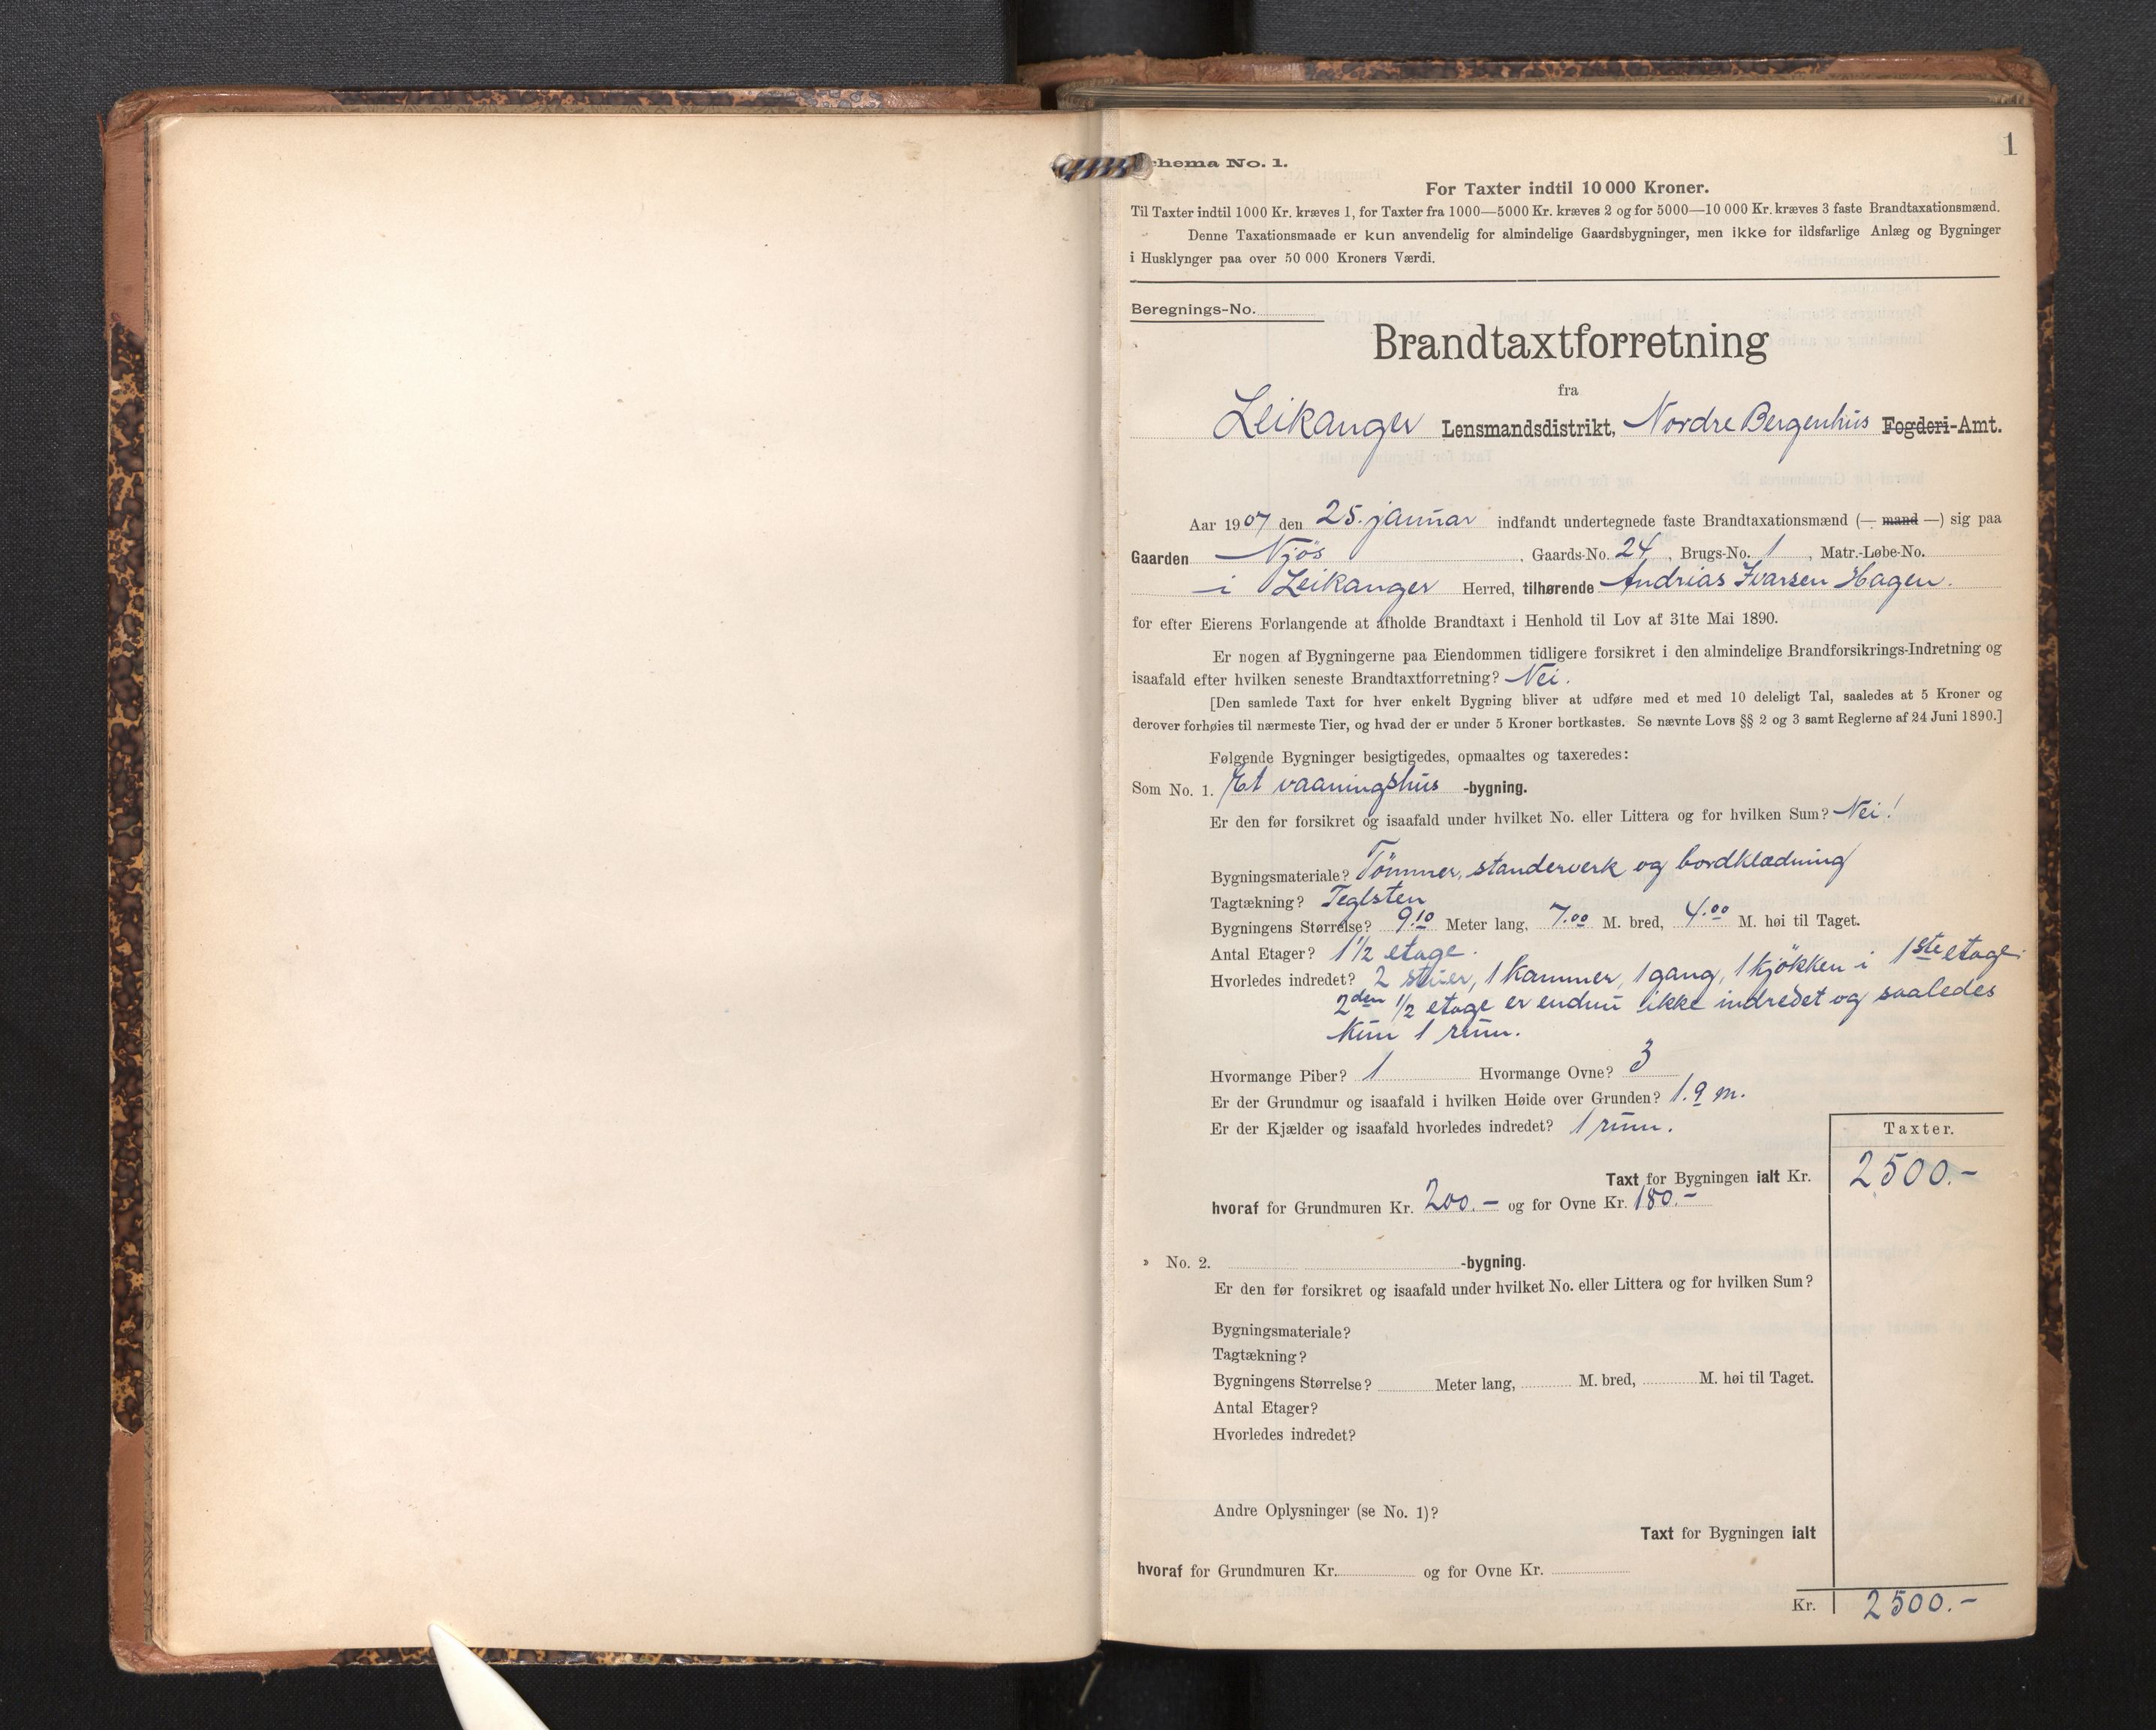 1
chema No. 1.
For Taxter indtil 10 000 Kroner.
Til Taxter indtil 1000 Kr. kræves 1, for Taxter fra 1000—5000 Kr. kræves 2 og for 5000—10 000 Kr. kræves 3 faste Brandtaxationsmænd.
Denne Taxationsmaade er kun anvendelig for almindelige Gaardsbygninger, men ikke for ildsfarlige Anlæg og Bygninger
i Husklynger paa over 50 000 Kroners Værdi.
Beregnings-No.
Brandtaxtforretning
fra
Leikanger Lensmandsdistrikt, Nordre Bergenhus Fogderi-Amt.
Aar 1907 den 25. januar indfandt undertegnede faste Brandtaxationsmænd (— mand —) sig paa
Gaarden Njös, Gaards-No. 24, Brugs-No. 1, Matr.-Løbe-No.
i Leikanger Herred, tilhørende Andrias Ivarsen Hagen.
for efter Eierens Forlangende at afholde Brandtaxt i Henhold til Lov af 31te Mai 1890.
Er nogen af Bygningerne paa Eiendommen tidligere forsikret i den almindelige Brandforsikrings-Indretning og
isaafald efter hvilken seneste Brandtaxtforretning? Nei.
[Den samlede Taxt for hver enkelt Bygning bliver at udføre med et med 10 deleligt Tal, saaledes at 5 Kroner og
derover forhøies til nærmeste Tier, og hvad der er under 5 Kroner bortkastes. Se nævnte Lovs §§ 2 og 3 samt Reglerne af 24 Juni 1890.]
Følgende Bygninger besigtigedes, opmaaltes og taxeredes:
Som No. 1. Et vaaningshus -bygning.
Er den før forsikret og isaafald under hvilket No. eller Littera og for hvilken Sum? Nei!
Bygningsmateriale? Tömmer, standerverk og bordklædning
Tagtækning? Teglsten
Bygningens Størrelse? 9.10 Meter lang, 7.00 M. bred, 4.00 M. høi til Taget.
Antal Etager? 1 1/2 etage.
Hvorledes indredet? 2 stuer, 1 kammer, 1 gang, 1 kjökken i 1ste etage.
2den 1/2 etage er endnu ikke indredet og saaledes
kun 1 rum.
Hvormange Piber? 1 Hvormange Ovne? 3
Er der Grundmur og isaafald i hvilken Høide over Grunden? 1.9 m.
Er der Kjælder og isaafald hvorledes indredet? 1 rum.
Taxter.
Taxt for Bygningen ialt Kr. 2500.-
hvoraf for Grundmuren Kr. 200.- og for Ovne Kr. 180.-
» No. 2. -bygning.
Er den før forsikret og isaafald under hvilket No. eller Littera og for hvilken Sum?
Bygningsmateriale?
Tagtækning?
Bygningens Størrelse? Meter lang, M. bred, M. høi til Taget.
Antal Etager?
Hvorledes indredet?
Andre Oplysninger (se No. 1)?
Taxt for Bygningen ialt
hvoraf for Grundmuren Kr. og for Ovne Kr.
Kr. 2500.-